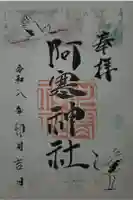 奉拝
阿寒神社
令和八年卯月吉日